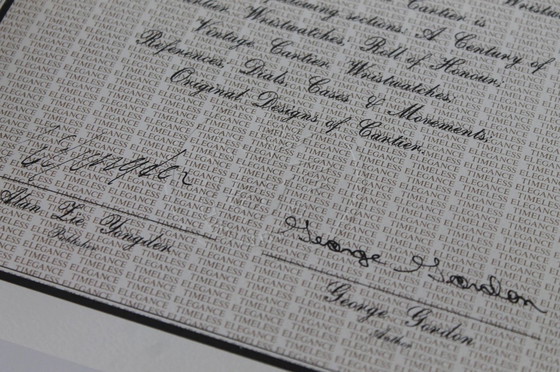 Cartier is
sections: A Century of
Wristwatches; Roll of Honour;
Vintage Cartier Wristwatches;
References; Dials, Cases & Movements;
Original Designs of Cartier.
George Gordon
Alan Zie Yongder
Publisher
George Gordon
Author
TIMELESS ELEGANCE